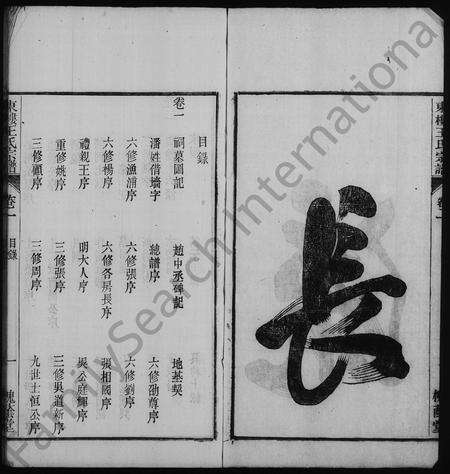 東樓王氏宗譜
卷一
長
目錄
卷一
祠墓圖記
趙中丞碑記
地基契
潘姓借墻字
總譜序
六修劭尊序
六修漁浦序
六修張序
六修劉序
六修楊序
六修各房長序
張相國序
禮親王序
明大人序
吳公庭輝序
重修姚序
三修張序
三修男道新序
三修顧序
三修周序
九世士恒公序
東樓王氏宗譜
卷一
目錄
一
FamilySearch International